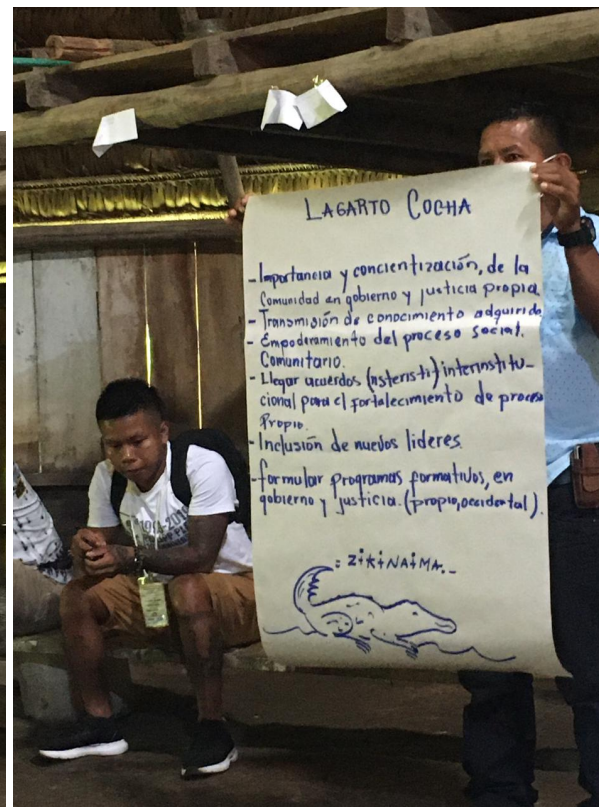 LAGARTO COCHA
- Importancia y concientización, de la
Comunidad en gobierno y justicia propia
- Transmisión de conocimiento adquirido
- Empoderamiento del proceso social.
Comunitario.
- Llegar acuerdos (nsteristi) interinstitu-
cional para el fortalecimiento de proceso
Propio.
- Inclusión de nuevos lideres.
- formular programas formativos, en
gobierno y justicia. (propio, occidental).
: ZɨKɨNAɨMA._